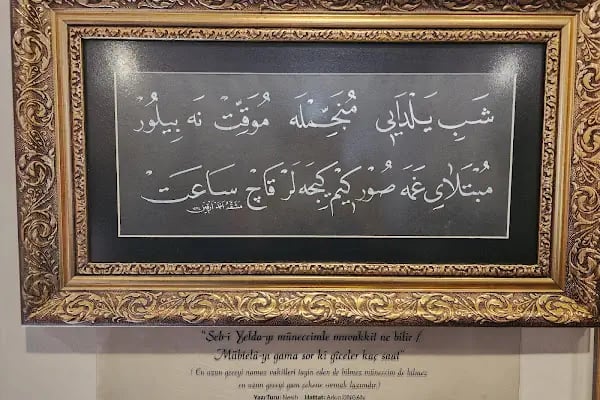 شَبِ يَلْدَايِي مُنَجِّمْلَه مُوَقِّتْ نَه بِيلُورْ
مُبْتَلَاىِ غَمَه صُورْ كِيمْ كِيجَه لَرْ قَاچْ سَاعَتْ
"Şeb-i Yelda-yı müneccimle muvakkit ne bilir !
Mübtelâ-yı gama sor ki giceler kaç saat"
( En uzun geceyi namaz vakitleri tayin eden de bilmez müneccim de bilmez
en uzun geceyi gam çekene sormak lazımdır.)
Yazı Türü: Nesih Hattat: